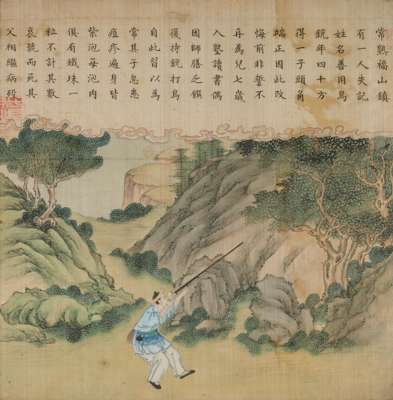 常熟福山鎮
有一人失記
姓名善用鳥
銃年四十方
得一子頭角
端正因此改
悔前非誓不
再為兒七歲
入塾讀書偶
因師膳乏饌
復持銃打鳥
自此習以為
常其子忽患
瘟疹遍身皆
紫泡每泡內
俱有鐵珠一
粒不計其數
哀號而死其
父相繼病歿